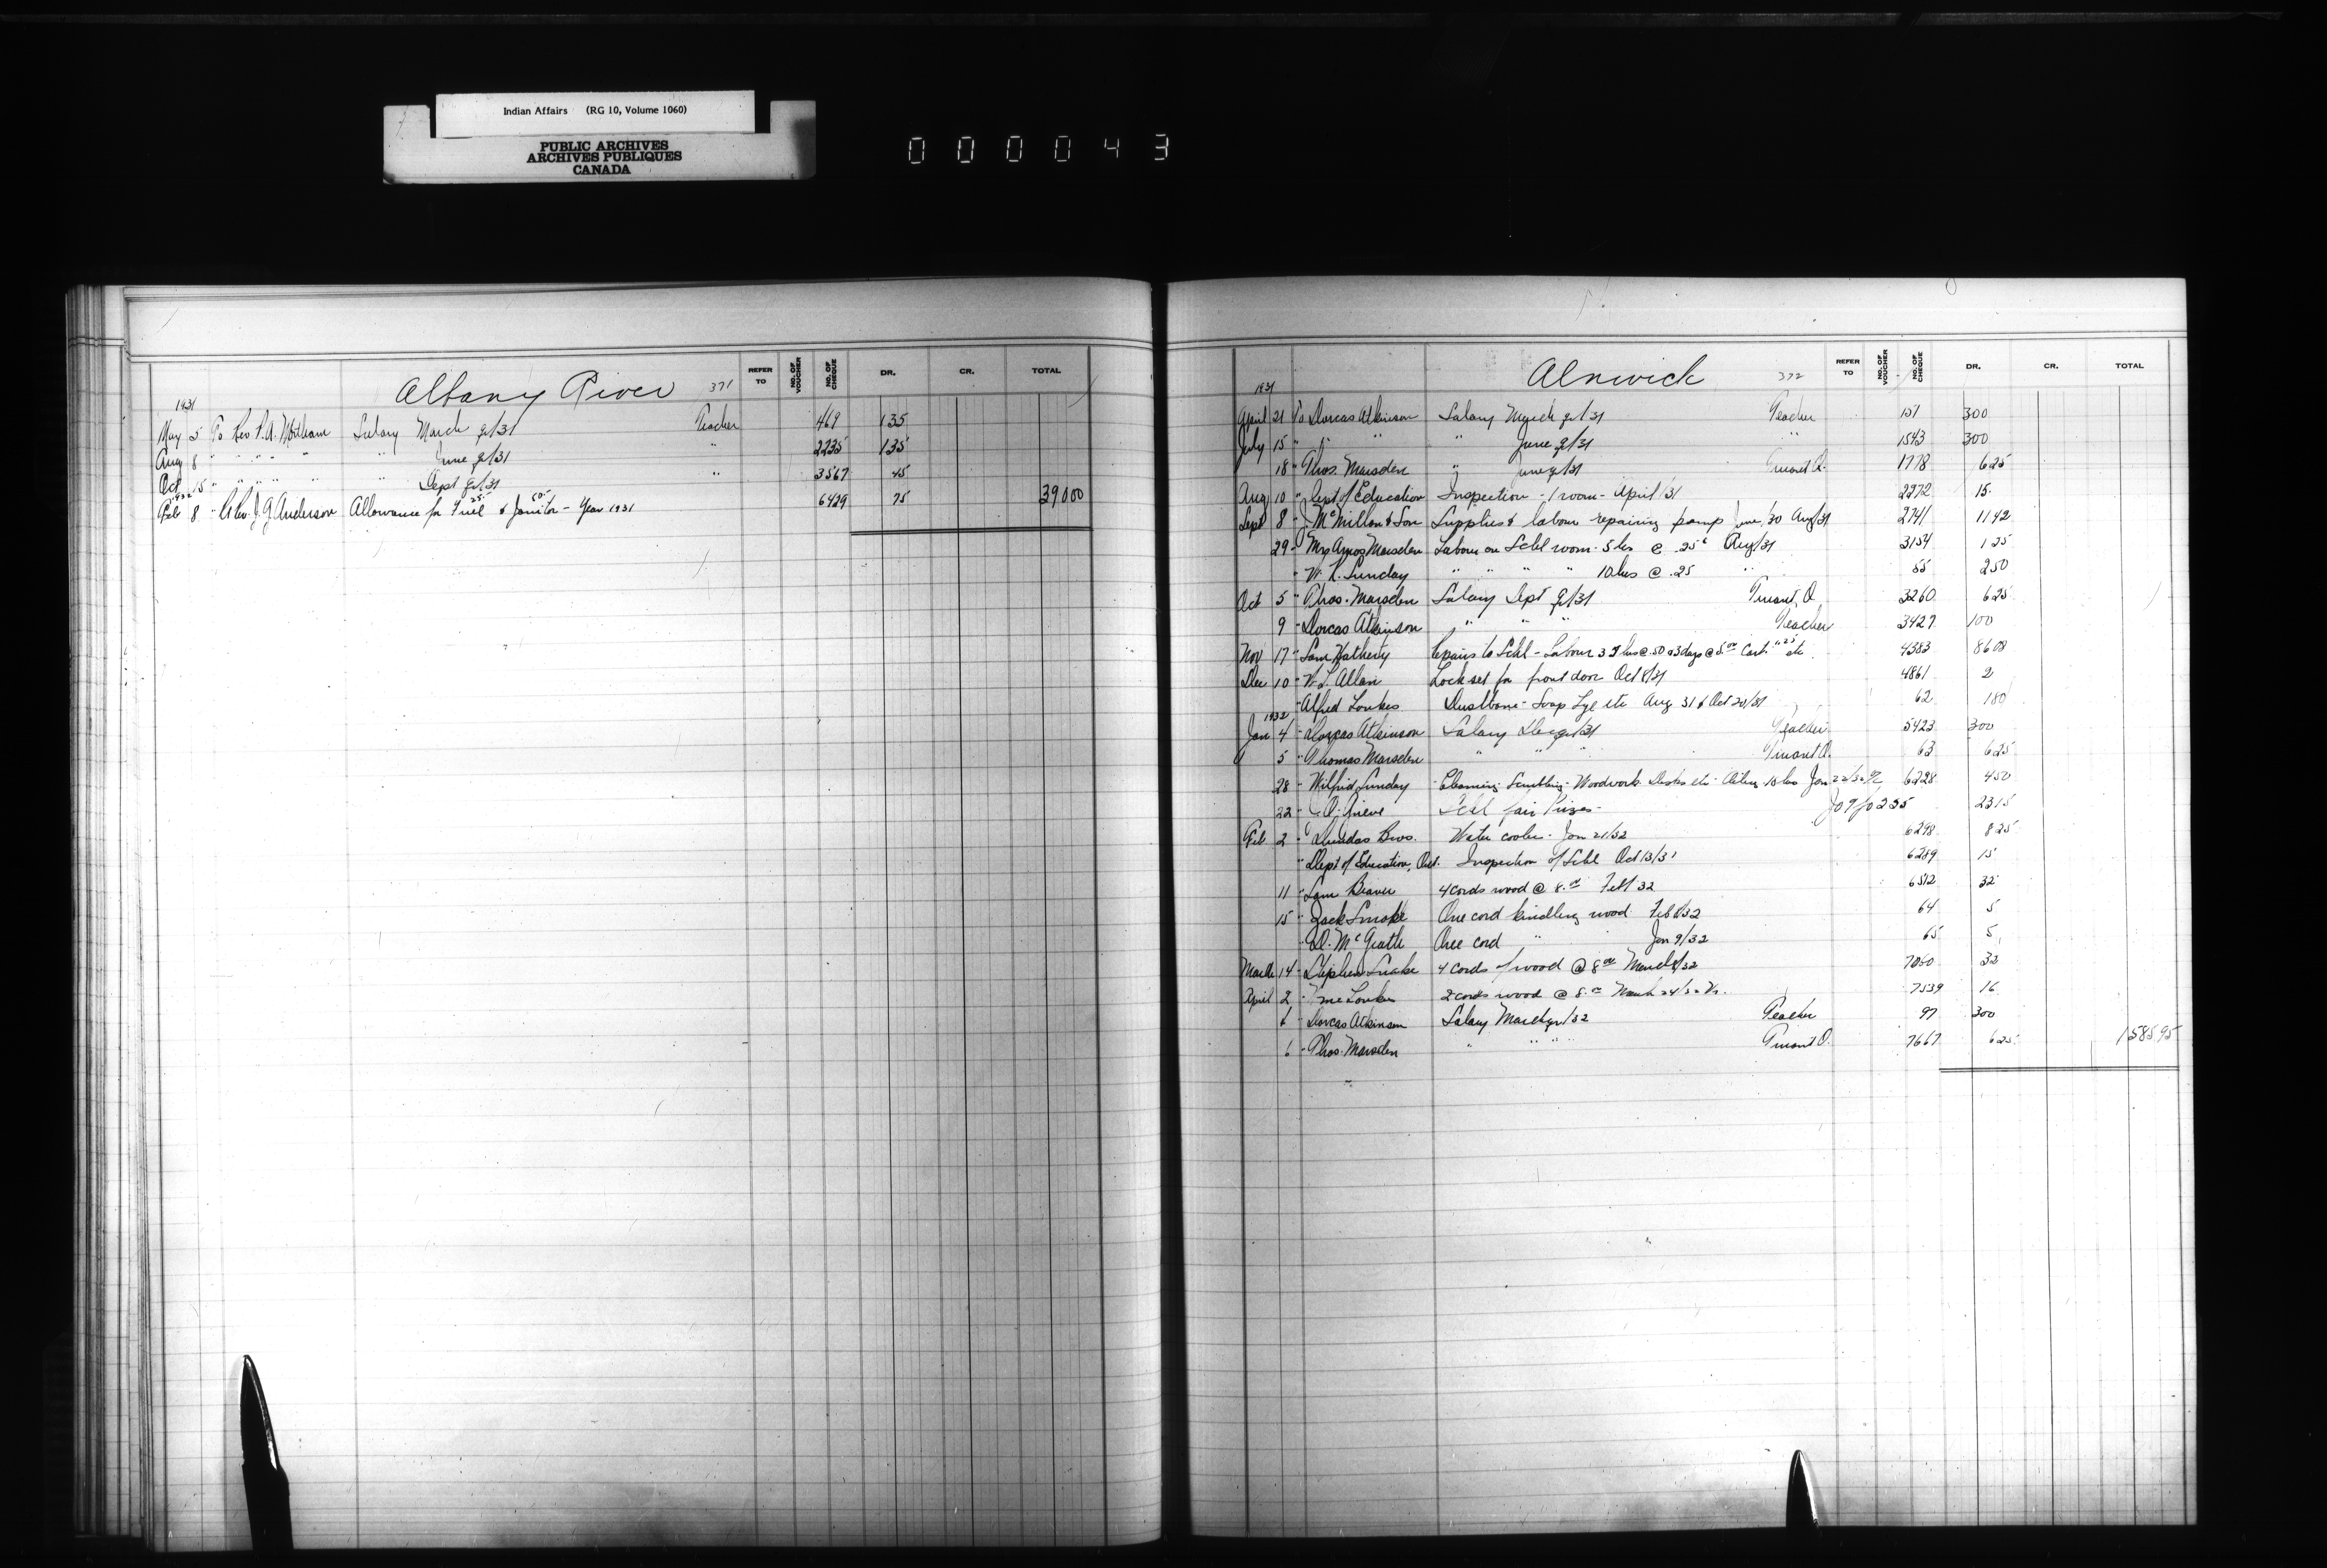 Indian Affairs (RG 10, Volume 1060)
PUBLIC ARCHIVES
ARCHIVES PUBLIQUES
CANADA
000043
Albany River 371
REFER TO NO. OF VOUCHER NO. OF CHEQUE DR. CR. TOTAL
1931
May 5 To Rev F.A. Salary March qr/31 Teacher 469 135
Aug 8 " " " " " June qr/31 " 2235 135
Oct 15 " " " " " Sept qr/31 " 3567 45
1932
Feb 8 " Rev. J.G. Anderson Allowance for Fuel 25.- & Janitor 50.- - Year 1931 6429 75 390 00
Alnwick 372
REFER TO NO. OF VOUCHER NO. OF CHEQUE DR. CR. TOTAL
1931
April 21 To Dorcas Atkinson Salary March qr/31 Teacher 157 300
July 15 " " " " June qr/31 " 1543 300
18 " Thos. Marsden " June qr/31 Truant O. 1778 6 25
Aug 10 " Dept of Education Inspection - 1 room - April/31 2272 15
Sept 8 " J. McMillan & Son Supplies & labour repairing pump June/30 Aug/31 2741 11 42
29 " Mrs Amos Marsden Labour on Schl room - 5 hrs @ .25¢ Aug/31 3154 1 25
" W. R. Sunday " " " " 10 hrs @ .25 " 55 2 50
Oct 5 " Thos. Marsden Salary Sept qr/31 Truant O. 3260 6 25
9 " Dorcas Atkinson " " " Teacher 3427 100
Nov 17 " Sam Hatherly Repairs to Schl - Labour hrs @ .50 & 3 days @ 5.00 etc 4383 86 08
Dec 10 " W. L. Allan Lock set for front door Oct 8/31 4861 2
" Alfred Loukes Dustbane - Soap Lye etc Aug 31 & Oct 20/31 62 1 80
1932
Jan 4 " Dorcas Atkinson Salary Dec qr/31 Teacher 5423 300
5 " Thomas Marsden " " " Truant O. 63 6 25
28 " Wilfrid Sunday Cleaning Scrubbing Woodwork Desks etc 18 hrs Jan 6228 4 50
22 " Grieve Schl fair Prizes - 23 15
Feb 2 " Dundas Bros. Water cooler - Jan 21/32 6298 8 25
" Dept of Education, Ont. Inspection of Schl Oct 13/31 6289 15
11 " Sam Beaver 4 cords wood @ 8.00 Feb/32 6512 32
15 " Jack Smoke One cord kindling wood Feb 8/32 64 5
" D. McGrath One cord " Jan 9/32 65 5
March 14 " Stephen Snake 4 cords of wood @ 8.00 March/32 7050 32
April 2 " Loukes 2 cords wood @ 8.00 March 24/32 7539 16
6 " Dorcas Atkinson Salary March qr/32 Teacher 97 300
6 " Thos. Marsden " " " Truant O. 7667 6 25 1585.95